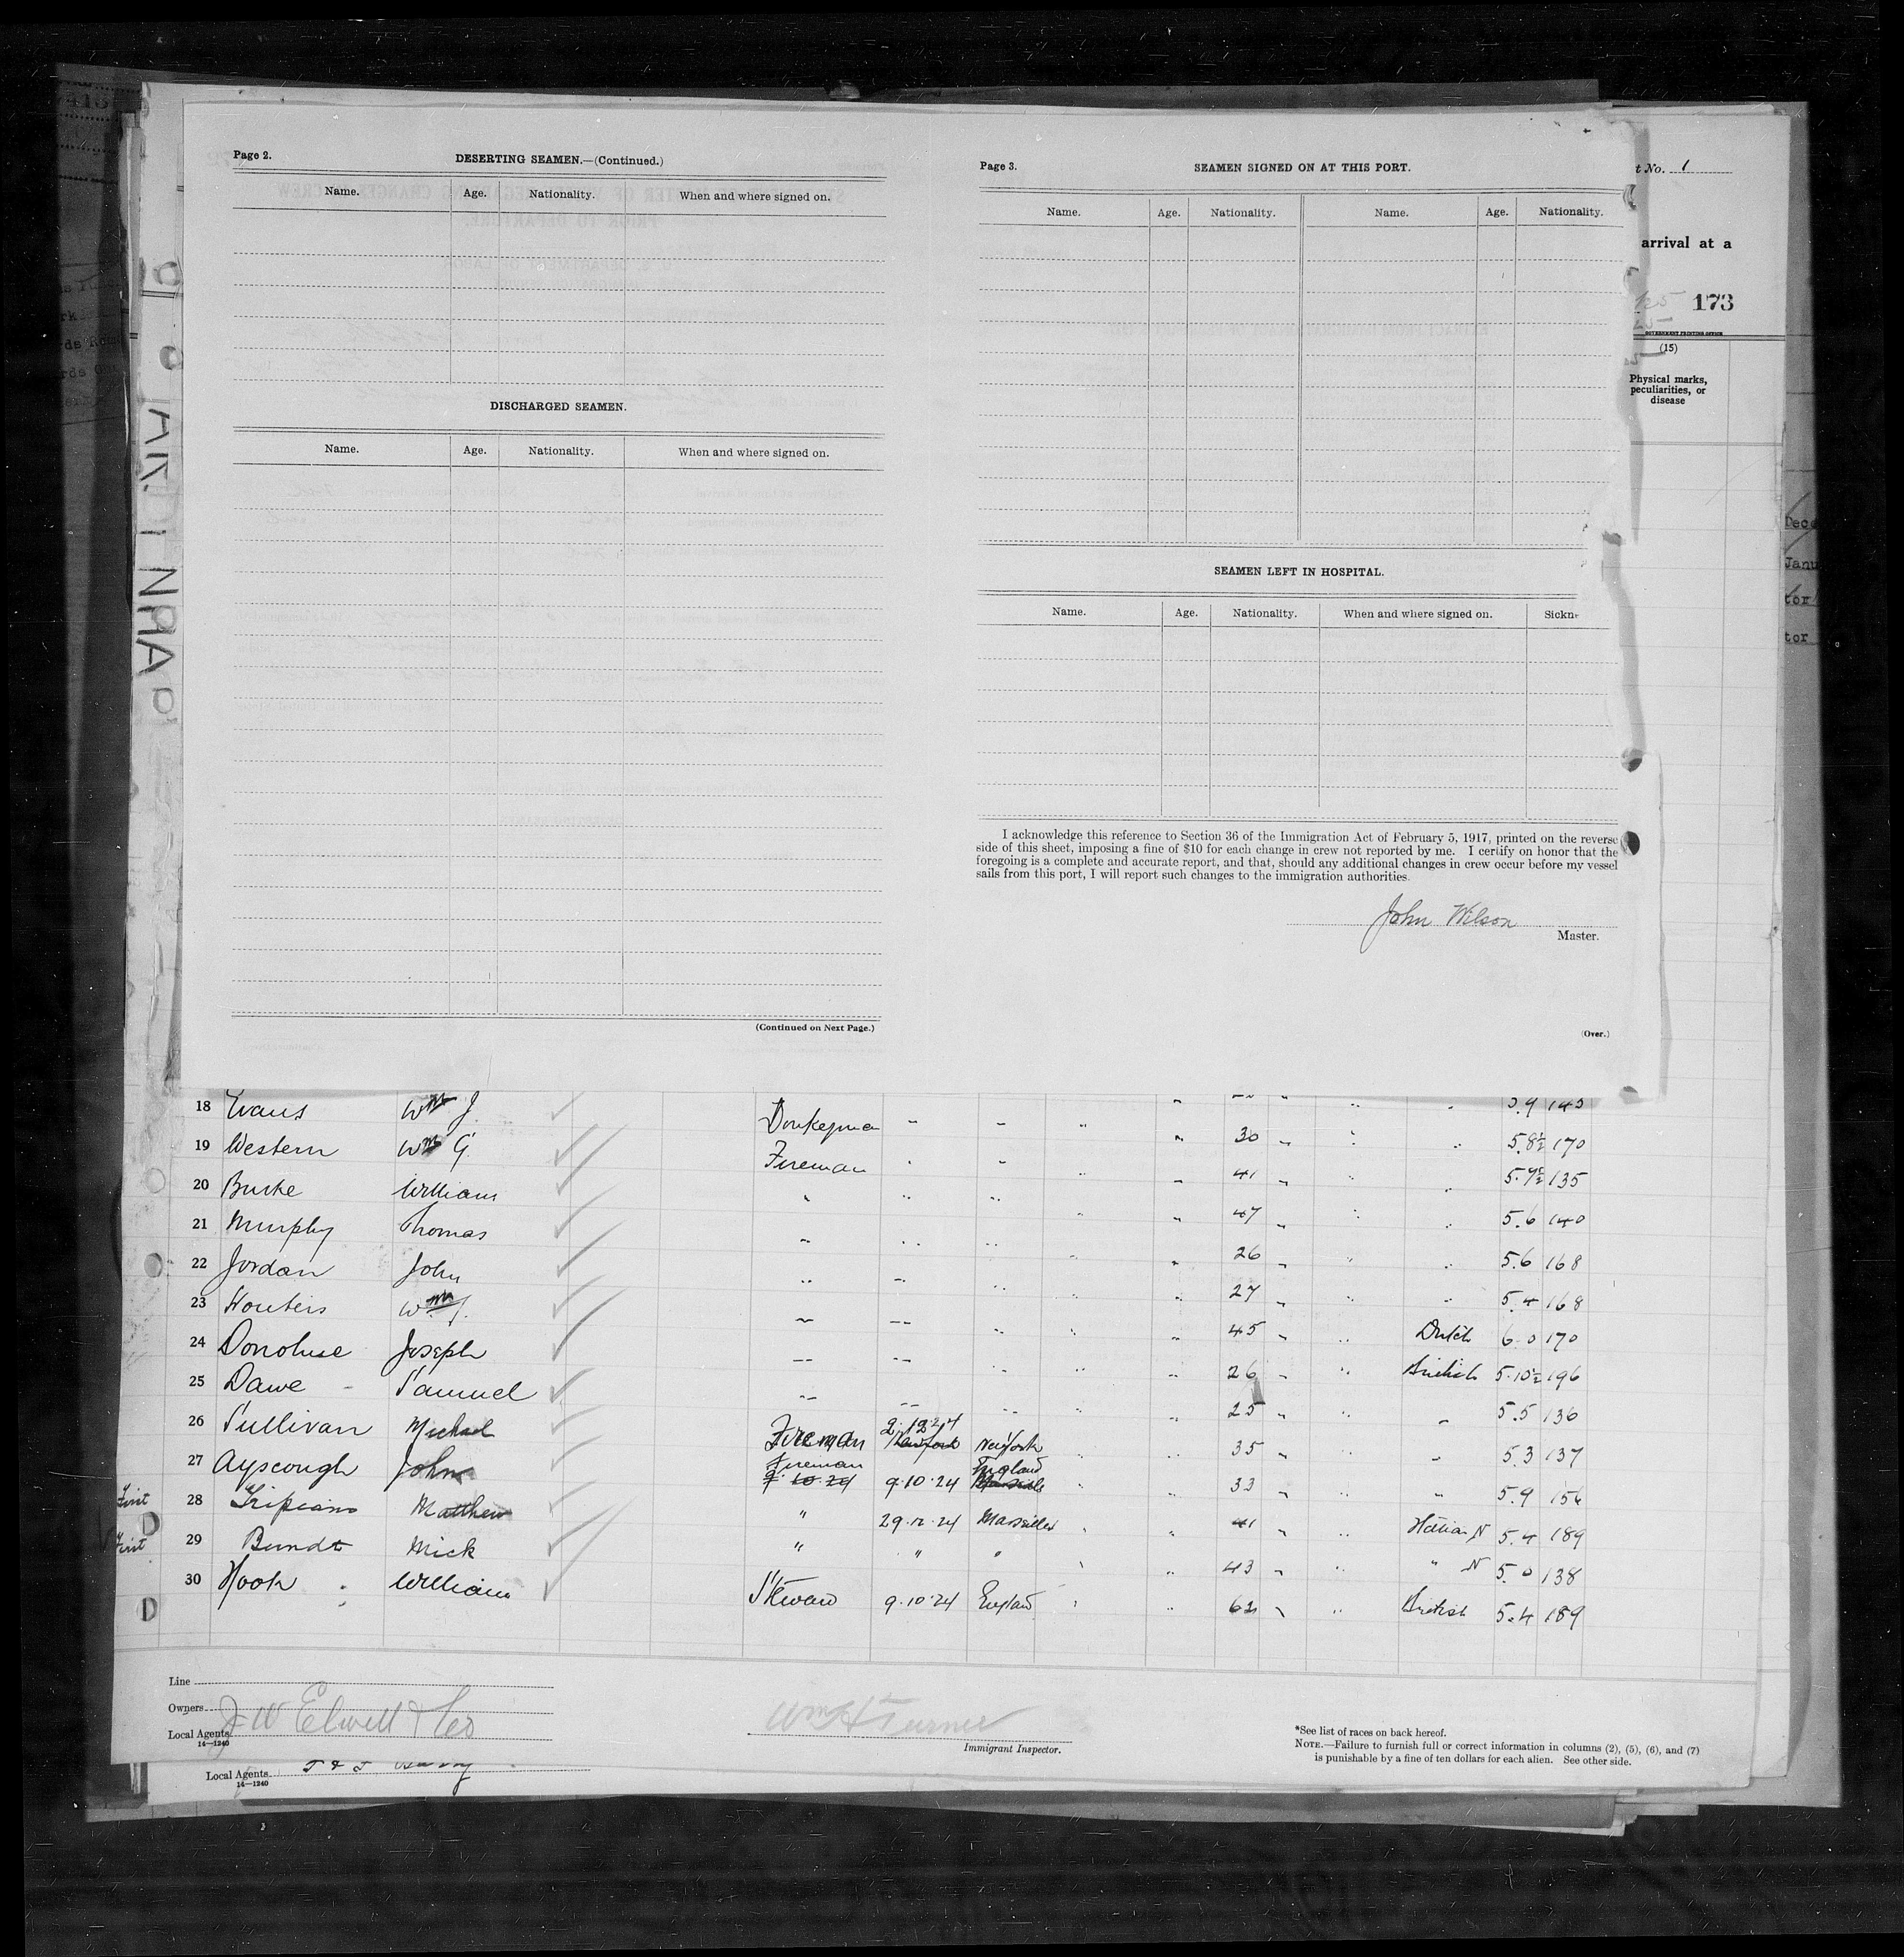 Page 2.
DESERTING SEAMEN.—(Continued.)
Name. Age. Nationality. When and where signed on.
DISCHARGED SEAMEN.
Name. Age. Nationality. When and where signed on.
(Continued on Next Page.)
Page 3.
SEAMEN SIGNED ON AT THIS PORT.
Name. Age. Nationality. Name. Age. Nationality.
SEAMEN LEFT IN HOSPITAL.
Name. Age. Nationality. When and where signed on.
I acknowledge this reference to Section 36 of the Immigration Act of February 5, 1917, printed on the reverse
side of this sheet, imposing a fine of $10 for each change in crew not reported by me. I certify on honor that the
foregoing is a complete and accurate report, and that, should any additional changes in crew occur before my vessel
sails from this port, I will report such changes to the immigration authorities.
John Wilson
Master.
(Over.)
t No. 1
arrival at a
173
GOVERNMENT PRINTING OFFICE
(15)
Physical marks,
peculiarities, or
disease
18 Evans Wm J. Donkeyman 5.9
19 Western Wm G. Fireman 30 5.8½ 170
20 Burke William 41 135
21 Murphy Thomas 47 5.6 140
22 Jordan John 26 5.6 168
23 Wouters Wm J. 27 5.4 168
24 Donohue Joseph 45 Dutch 6.0 170
25 Dawe Samuel 26 British 5.10½ 196
26 Sullivan Michael Fireman New York 25 5.5 136
27 Ayscough John Fireman 9.10.24 England 35 5.3 137
First 28 Matthew " 29.12.24 Marseilles 33 5.9 156
First D 29 Mick " " " 41 Italian N 5.4 189
30 Hook William Steward 9.10.24 England 43 " N 5.0 138
D 62 British 5.4 189
Line
Owners
Local Agents J W Elwell & Co
14—1240
Wm H Turner
Immigrant Inspector.
*See list of races on back hereof.
NOTE.—Failure to furnish full or correct information in columns (2), (5), (6), and (7)
is punishable by a fine of ten dollars for each alien. See other side.
Local Agents
14—1240